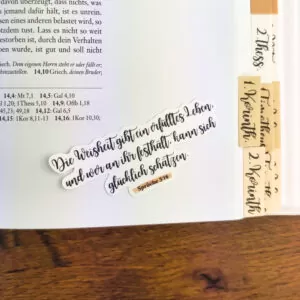 davon überzeugt, dass nichts, was
s jemand dafür hält, ist es unrein.
sen eines anderen belastet wird, so
tzdem tust. Lass es nicht so weit
estorben ist, durch dein Verhalten
ben wurde, ist gut und soll nicht
Griech. Dem eigenen Herrn steht er oder fällt er;
14,10 Griech. deinen Bruder;
14,4: Mt 7,1 14,5: Gal 4,10
1,20; 1Thess 5,10 14,9: Offb 1,18
45,23; 49,18 14,12: Gal 6,5
14,15: 1Kor 8,11-13 14,16: 1Kor 10,30,
Die Weisheit gibt ein erfülltes Leben,
und wer an ihr festhält, kann sich
glücklich schätzen.
Sprüche 3:18
2. Thess.
1. Korinth.
2. Korinth